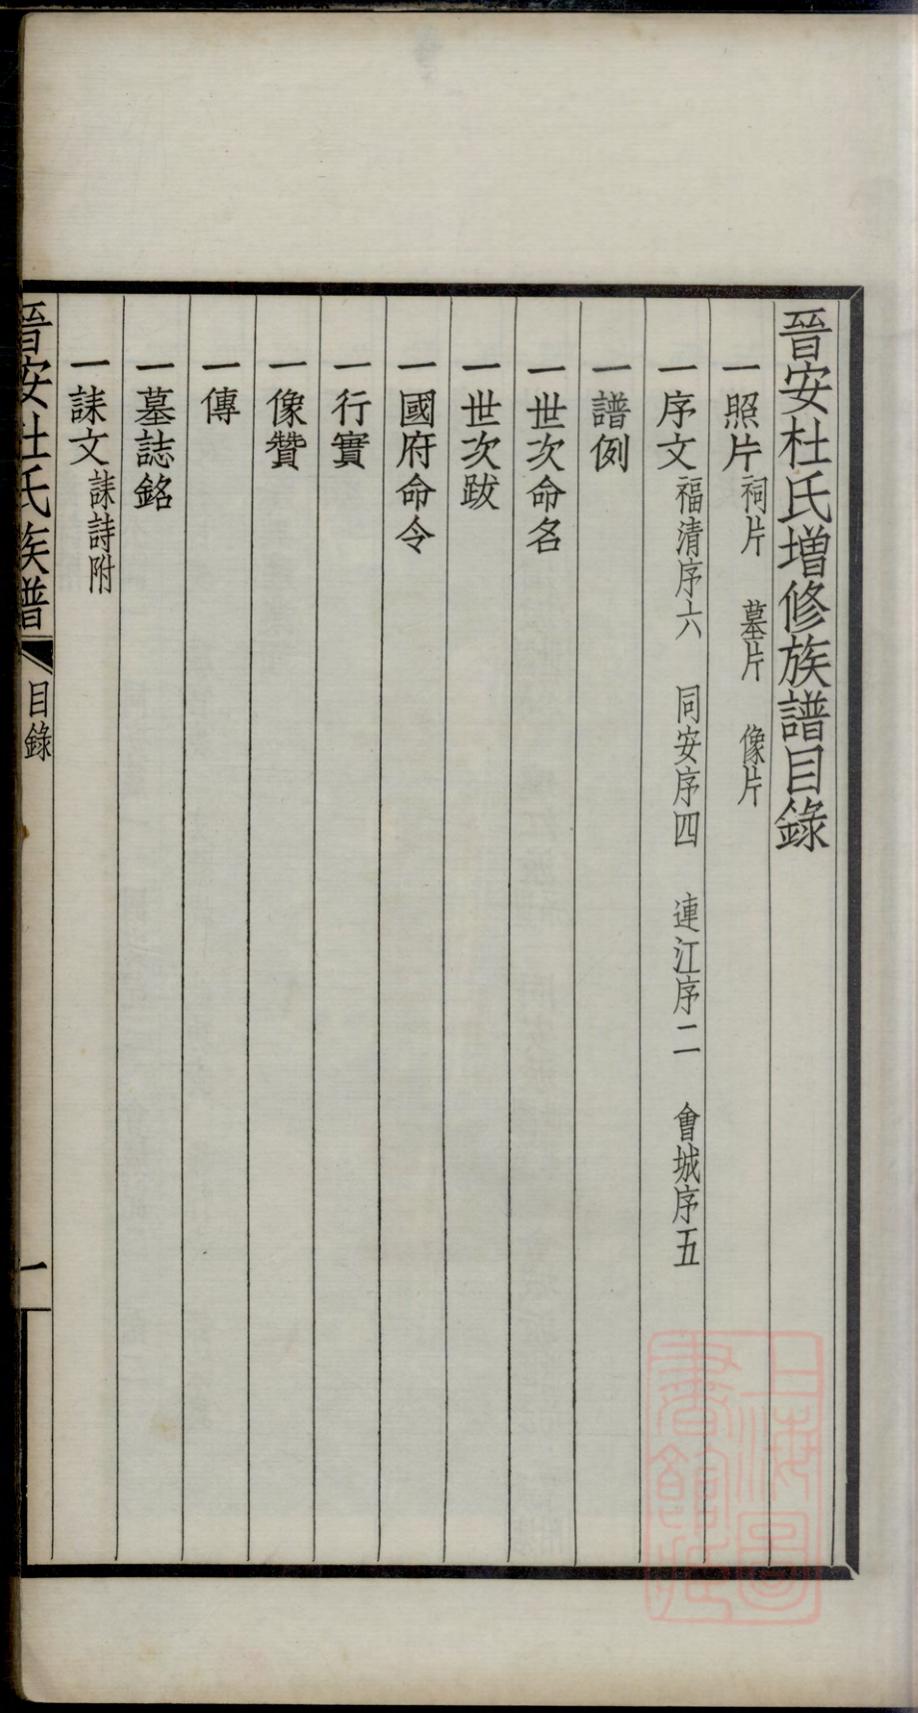 晉安杜氏增修族譜目錄
一照片 祠片 墓片 像片
一序文 福清序六 同安序四 連江序二 會城序五
一譜例
一世次命名
一世次跋
一國府命令
一行實
一像贊
一傳
一墓誌銘
一誄文 誄詩附
晉安杜氏族譜 目錄 一
上海圖書館藏